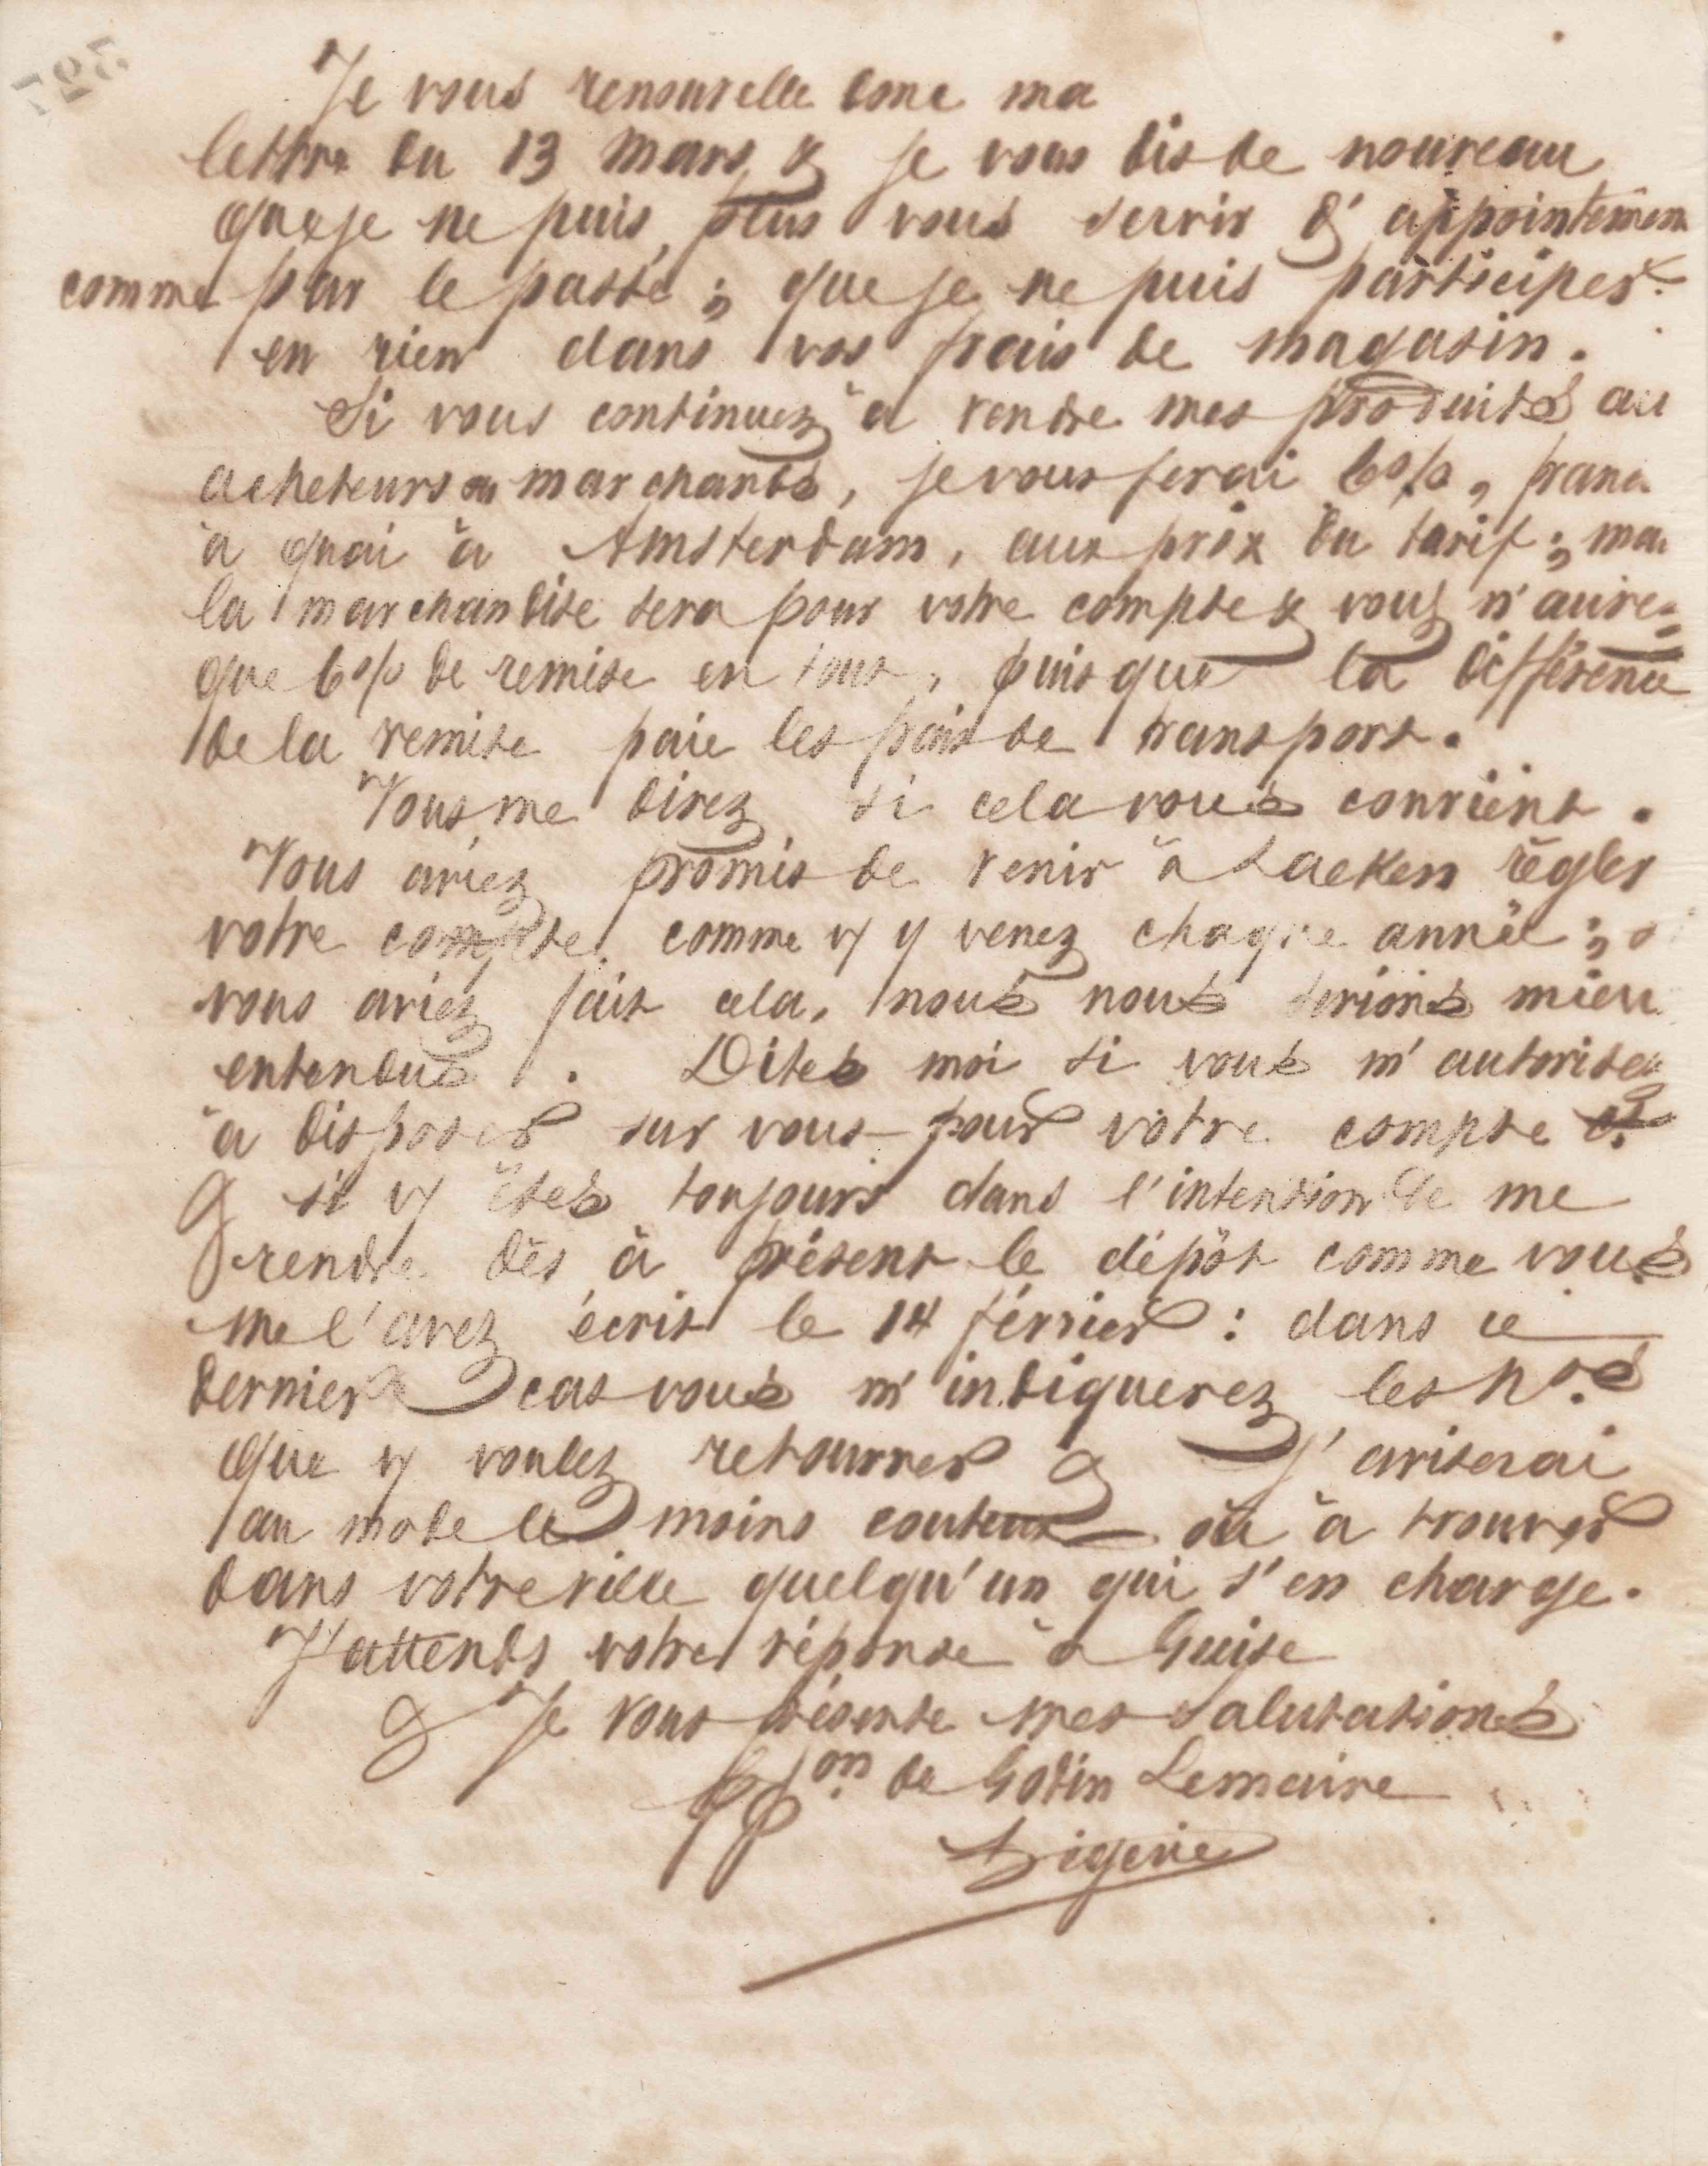 Je vous renouvelle donc ma
lettre du 13 Mars & je vous dis de nouveau
que je ne puis plus vous servir d'appointemen
comme par le passé ; que je ne puis participer
en rien dans vos frais de magasin.
Si vous continuez à vendre mes produits au
acheteurs ou marchands, je vous ferai 6%, franc
à quai à Amsterdam, aux prix du tarif ; ma
la marchandise sera pour votre compte & vous n'aurez
que 6% de remise en tout, puisque la différence
de la remise paie les frais de transport.
Vous me direz si cela vous convient.
Vous aviez promis de venir à Laeken régler
votre compte comme vs y venez chaque année ; s
vous aviez fait cela, nous nous serions mieu
entendus. Dites moi si vous m'autorisez
à disposer sur vous pour votre compte
& si vs êtes toujours dans l'intention de me
rendre dès à présent le dépôt comme vous
me l'avez écrit le 14 février : dans ce
dernier cas vous m'indiquerez les nos
que vs voulez retourner & j'aviserai
au mode le moins couteux ou à trouver
dans votre ville quelqu'un qui s'en charge.
J'attends votre réponse à Guise
& Je vous présente mes salutations
pp on de Godin Lemaire